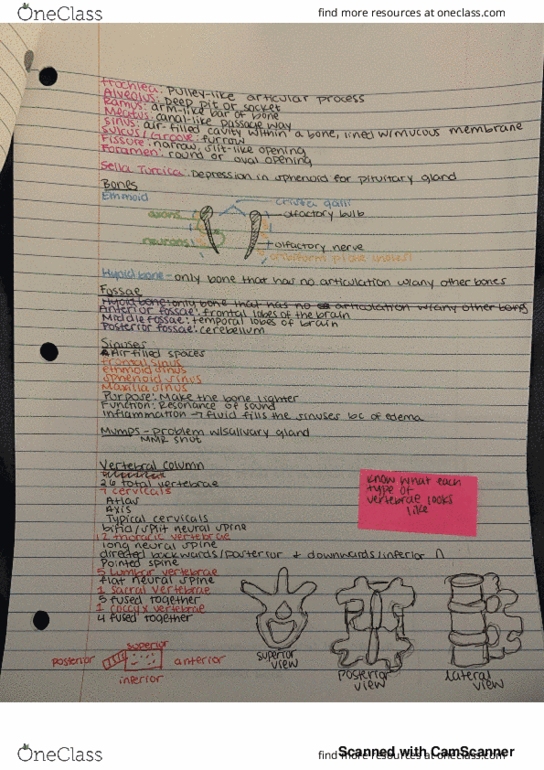 OneClass
find more resources at oneclass.com
trochlea: pulley-like articular process
Alveolus: Deep pit or socket
Ramus: arm-like bar of bone
Meatus: canal-like passage way
sinus: air-filled cavity within a bone, lined w/mucous membrane
Sulcus/Groove: furrow
Fissure: narrow, slit-like opening
Foramen: round or oval opening
Sella Turcica: Depression in sphenoid for pituitary gland
Bones
Ethmoid
crista galli
axons
olfactory bulb
neurons
olfactory nerve
cribriform plate (holes)
Hyoid bone - only bone that has no articulation w/any other bones
Fossae
Hyoid bone: only bone that has no articulation w/any other bones
Anterior fossae: frontal lobes of the brain
Middle fossae: temporal lobes of brain
Posterior fossae: cerebellum
Sinuses
Air filled spaces
frontal sinus
ethmoid sinus
sphenoid sinus
Maxilla sinus
Purpose: Make the bone lighter
Function: Resonance of sound
Inflammation → fluid fills the sinuses b/c of edema
Mumps - problem w/salivary gland
MMR shot
Vertebral column
26 total vertebrae
7 cervicals
Atlas
Axis
Typical cervicals
bifid/split neural spine
12 thoracic vertebrae
long neural spine
directed backwards/posterior + downwards/inferior
Pointed spine
5 Lumbar vertebrae
flat neural spine
1 sacral vertebrae
5 fused together
1 coccyx vertebrae
4 fused together
know what each
type of
vertebrae looks
like
superior
posterior
anterior
inferior
superior
view
posterior
view
lateral
view
OneClass
find more resources at oneclass.com
Scanned with CamScanner